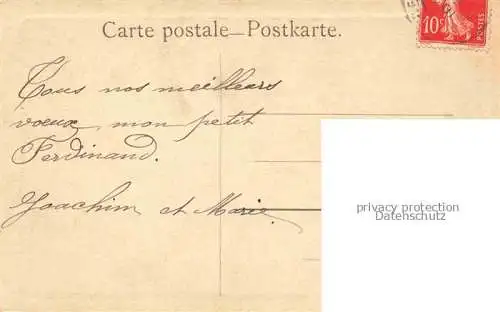 Carte postale–Postkarte.
10c
POSTES
Tous nos meilleurs
voeux mon petit
Ferdinand.
Joachim et Marie
privacy protection
Datenschutz